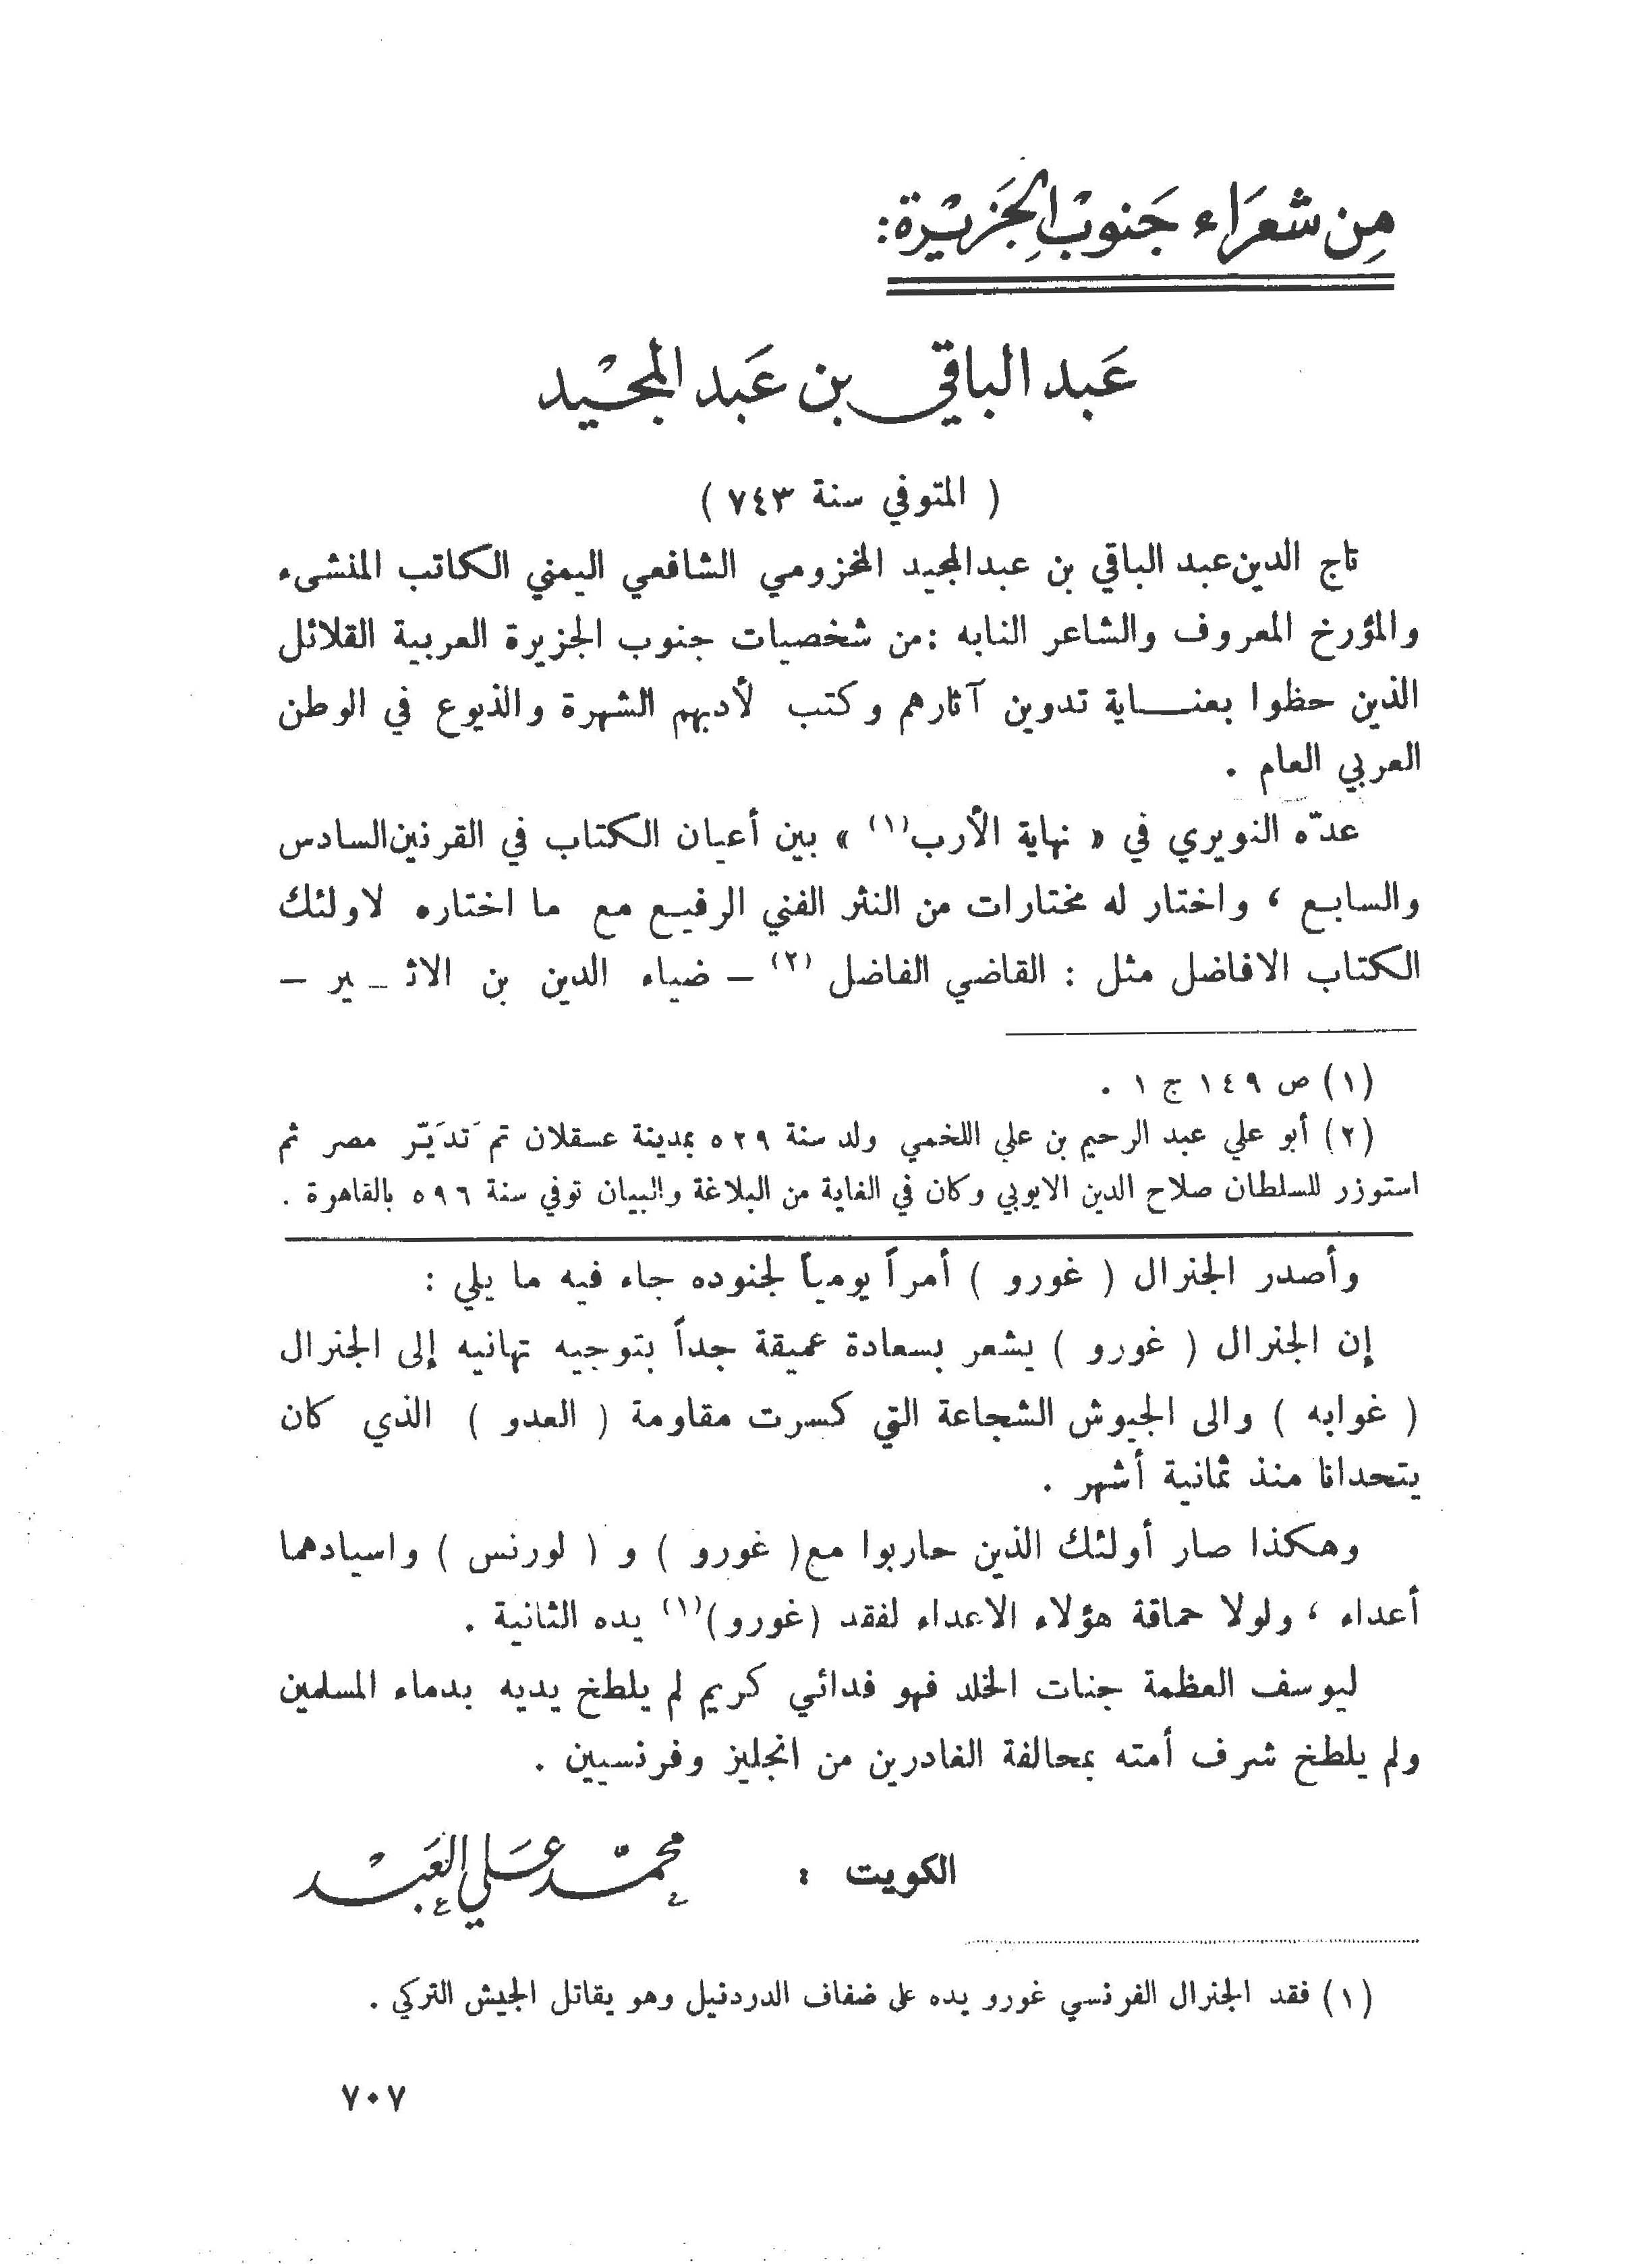 مِن شعَرَاء جَنوبْ الجَزيْرة:
عَبد الباقي بن عَبد المجيْد
( المتوفي سنة ٧٤٣ )
تاج الدين عبد الباقي بن عبدالمجيد المخزومي الشافعي اليمني الكاتب المنشىء
والمؤرخ المعروف والشاعر النابه : من شخصيات جنوب الجزيرة العربية القلائل
الذين حظوا بعنـــاية تدوين آثارهم وكتب لأدبهم الشهرة والذيوع في الوطن
العربي العام .
عدّه النويري في « نهاية الأرب(١) » بين أعيان الكتاب في القرنين السادس
والسابع ، واختار له مختارات من النثر الفني الرفيع مع ما اختاره لاولئك
الكتاب الافاضل مثل : القاضي الفاضل (٢) – ضياء الدين بن الاثـير –
(١) ص ١٤٩ ج ١ .
(٢) أبو علي عبد الرحيم بن علي اللخمي ولد سنة ٥٢٩ بمدينة عسقلان تم تَديَّر مصر ثم
استوزر للسلطان صلاح الدين الايوبي وكان في الغاية من البلاغة والبيان توفي سنة ٥٩٦ بالقاهرة .
وأصدر الجنرال ( غورو ) أمراً يومياً لجنوده جاء فيه ما يلي :
إن الجنرال ( غورو ) يشعر بسعادة عميقة جداً بتوجيه تهانيه إلى الجنرال
( غوابه ) والى الجيوش الشجاعة التي كسرت مقاومة ( العدو ) الذي كان
يتحدانا منذ ثمانية أشهر .
وهكذا صار أولئك الذين حاربوا مع( غورو ) و ( لورنس ) واسيادهما
أعداء ، ولولا حماقة هؤلاء الاعداء لفقد (غورو)(١) يده الثانية .
ليوسف العظمة جنات الخلد فهو فدائي كريم لم يلطخ يديه بدماء المسلمين
ولم يلطخ شرف أمته بمحالفة الغادرين من انجليز وفرنسيين .
الكويت : محمّد عَلي العَبْد
(١) فقد الجنرال الفرنسي غورو يده على ضفاف الدردنيل وهو يقاتل الجيش التركي .
٧٠٧